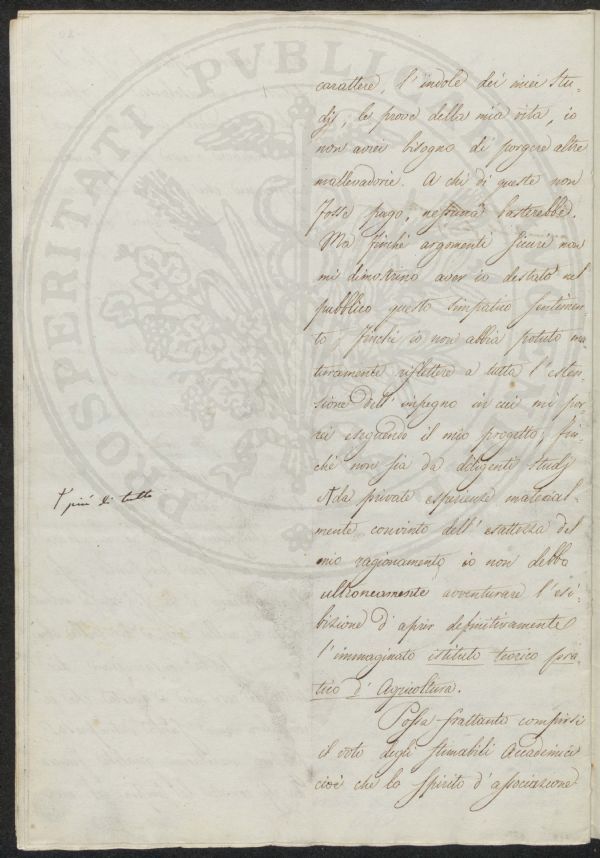 carattere, l'indole dei miei stu-
dj, le prove della mia vita, io
non avrei bisogno di porgere altre
mallevadorie. A chi di queste non
fosse pago, nessuna basterebbe.
Ma finché argomenti sicuri non
mi dimostrino aver io destato nel
pubblico questo simpatico sentimen-
to, finché io non abbia potuto ma-
turamente riflettere a tutta l'esten-
sione dell'impegno in cui mi por-
rei eseguendo il mio progetto, fin-
ché non sia da diligenti studj
+ da private esperienze material-
mente convinto dell'esattezza del
mio ragionamento, io non debbo
ultroneamente avventurare l'esi-
bizione d'aprir definitivamente
l'immaginato istituto teorico pra-
tico d'Agricoltura.
Possa frattanto compirsi
il voto degli stimabili Accademici
cioè che lo spirito d'associazione
+ più di tutto
PROSPERITATI PVBLICAE